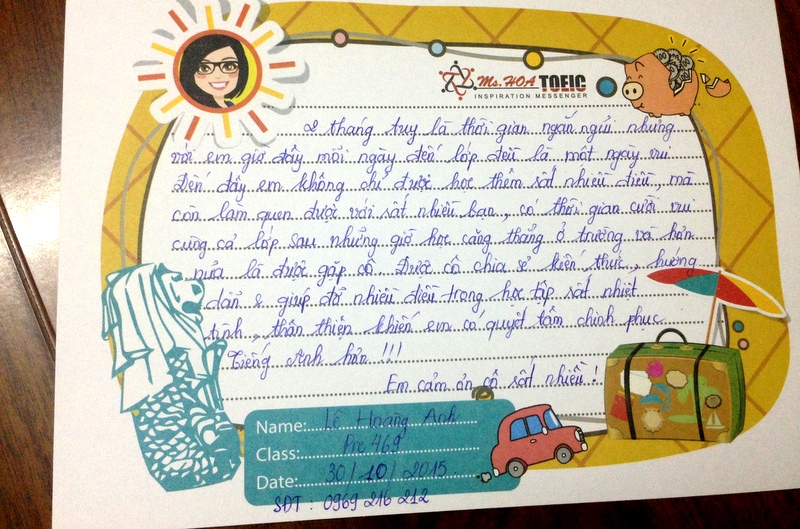 Ms. HOA TOEIC
INSPIRATION MESSENGER
2 tháng tuy là thời gian ngắn ngủi nhưng
với em giờ đây mỗi ngày đến lớp đều là một ngày vui
Đến đây em không chỉ được học thêm rất nhiều điều, mà
còn làm quen được với rất nhiều bạn, có thời gian cười vui
cùng cả lớp sau những giờ học căng thẳng ở trường và hơn
nữa là được gặp cô. Được cô chia sẻ kiến thức, hướng
dẫn & giúp đỡ nhiều điều trong học tập rất nhiệt
tình, thân thiện khiến em có quyết tâm chinh phục
Tiếng Anh hơn !!!
Em cảm ơn cô rất nhiều !
Name: Lê Hoàng Anh
Class: Pre 469
Date: 30/10/2015
SĐT : 0969 216 212